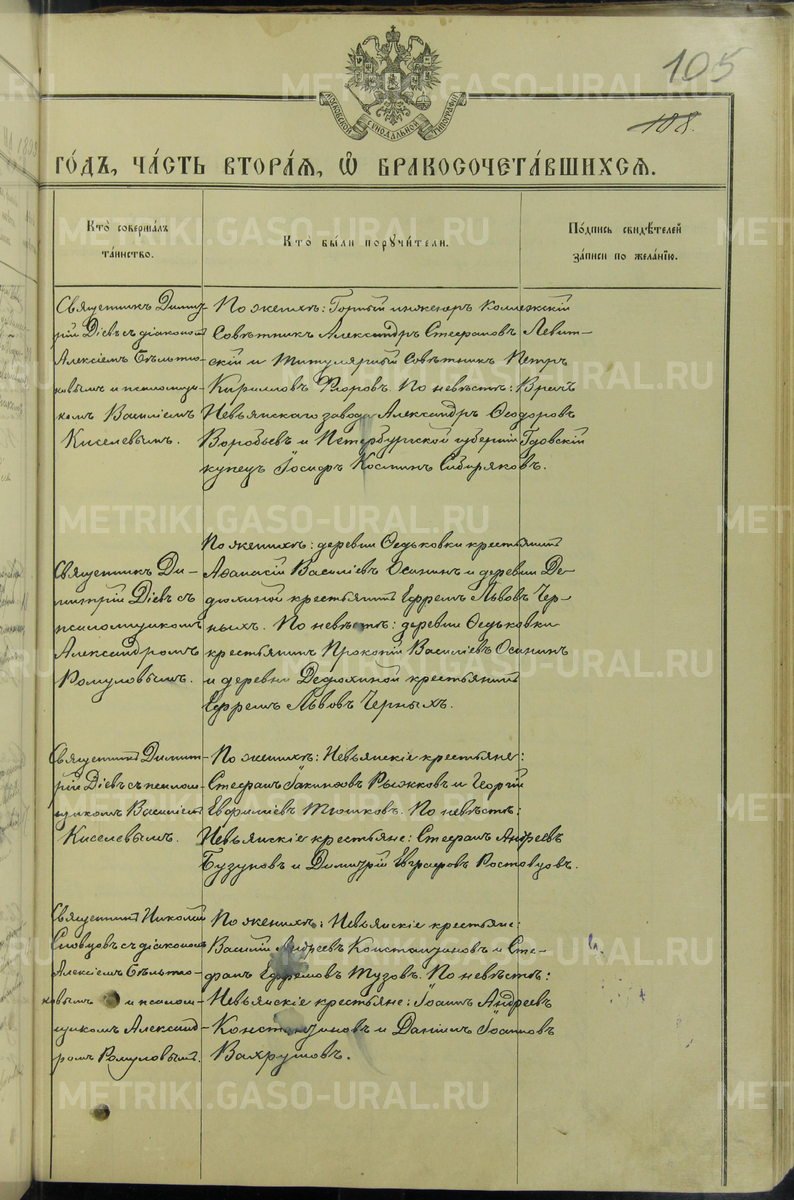 105
108.
МОСКОВСКОЙ СѴНОДАЛЬНОЙ ТИПОГРАФІИ
ГО́ДЪ, ЧА́СТЬ ВТОРА́Я, Ѽ БРАКОСОЧЕТА́ВШИХСЯ.
Кто̀ соверша́лъ
та́инство.
Кто̀ бы́ли поручи́тели.
По́дпись свидѣ́телей
за́писи по жела́нїю.
Священникъ Димит-
рій Діевъ съ діакономъ
Алексіемъ Бѣльтю-
ковымъ и псаломщи-
комъ Василіемъ
Киселевымъ.
По женихѣ: Горный инженеръ Коллежскій
Совѣтникъ Александръ Стефановъ Левит-
скій и Титулярный Совѣтникъ Петръ
Кирилловъ Флоровъ. По невѣстѣ: Врачъ
Невьянскаго завода Александръ Ѳеодоровъ
Воробьевъ и Петербургской губерніи Гдовскій
купецъ Іосифъ Косминъ Сибиряковъ.
Священникъ Ди-
митрій Діевъ съ
псаломщикомъ
Александромъ
Ромуловымъ.
По женихѣ: деревни Ѳедьковки крестьянинъ
Аѳанасій Василіевъ Осининъ и деревни Де-
дюхиной крестьянинъ Ефремъ Львовъ Чер-
ныхъ. По невѣстѣ: деревни Ѳедьковки
крестьянинъ Прокопій Василіевъ Осининъ
и деревни Дедюхиной крестьянинъ
Ефремъ Львовъ Черныхъ.
Священникъ Димит-
рій Діевъ съ псалом-
щикомъ Василіемъ
Киселевымъ.
По женихѣ: Невьянскіе крестьяне:
Стефанъ Іакинѳовъ Рыжковъ и Георгій
Евфиміевъ Тюшковъ. По невѣстѣ:
Невьянскіе крестьяне: Стефанъ Андреевъ
Бузуновъ и Димитрій Евграфовъ Ростовцовъ.
Священникъ Николай
Словцовъ съ діакономъ
Алексіемъ Бѣльтю-
ковымъ и псалом-
щикомъ Александ-
ромъ Ромуловымъ.
По женихѣ: Невьянскіе крестьяне:
Василій Андреевъ Константиновъ и Сте-
фанъ Ефремовъ Тузовъ. По невѣстѣ:
Невьянскіе крестьяне: Іоаннъ Андреевъ
Константиновъ и Даніилъ Іоанновъ
Вахрушовъ.
METRIKI.GASO-URAL.RU